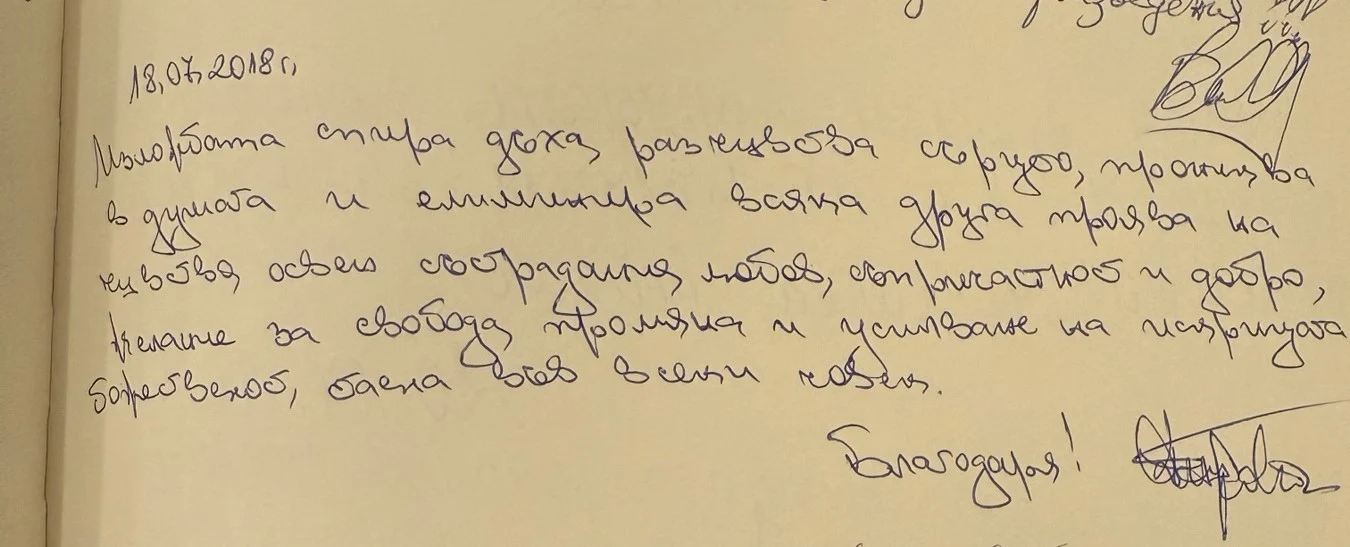 18.07.2018 г.
Изложбата спира дъха, разчувства сърцето, прониква
в душата и елиминира всяка друга проява на
чувства, освен състрадание, любов, съпричастност и добро,
желание за свобода, промяна и усилване на искрицата
божественост, таена във всеки човек.
Благодаря!